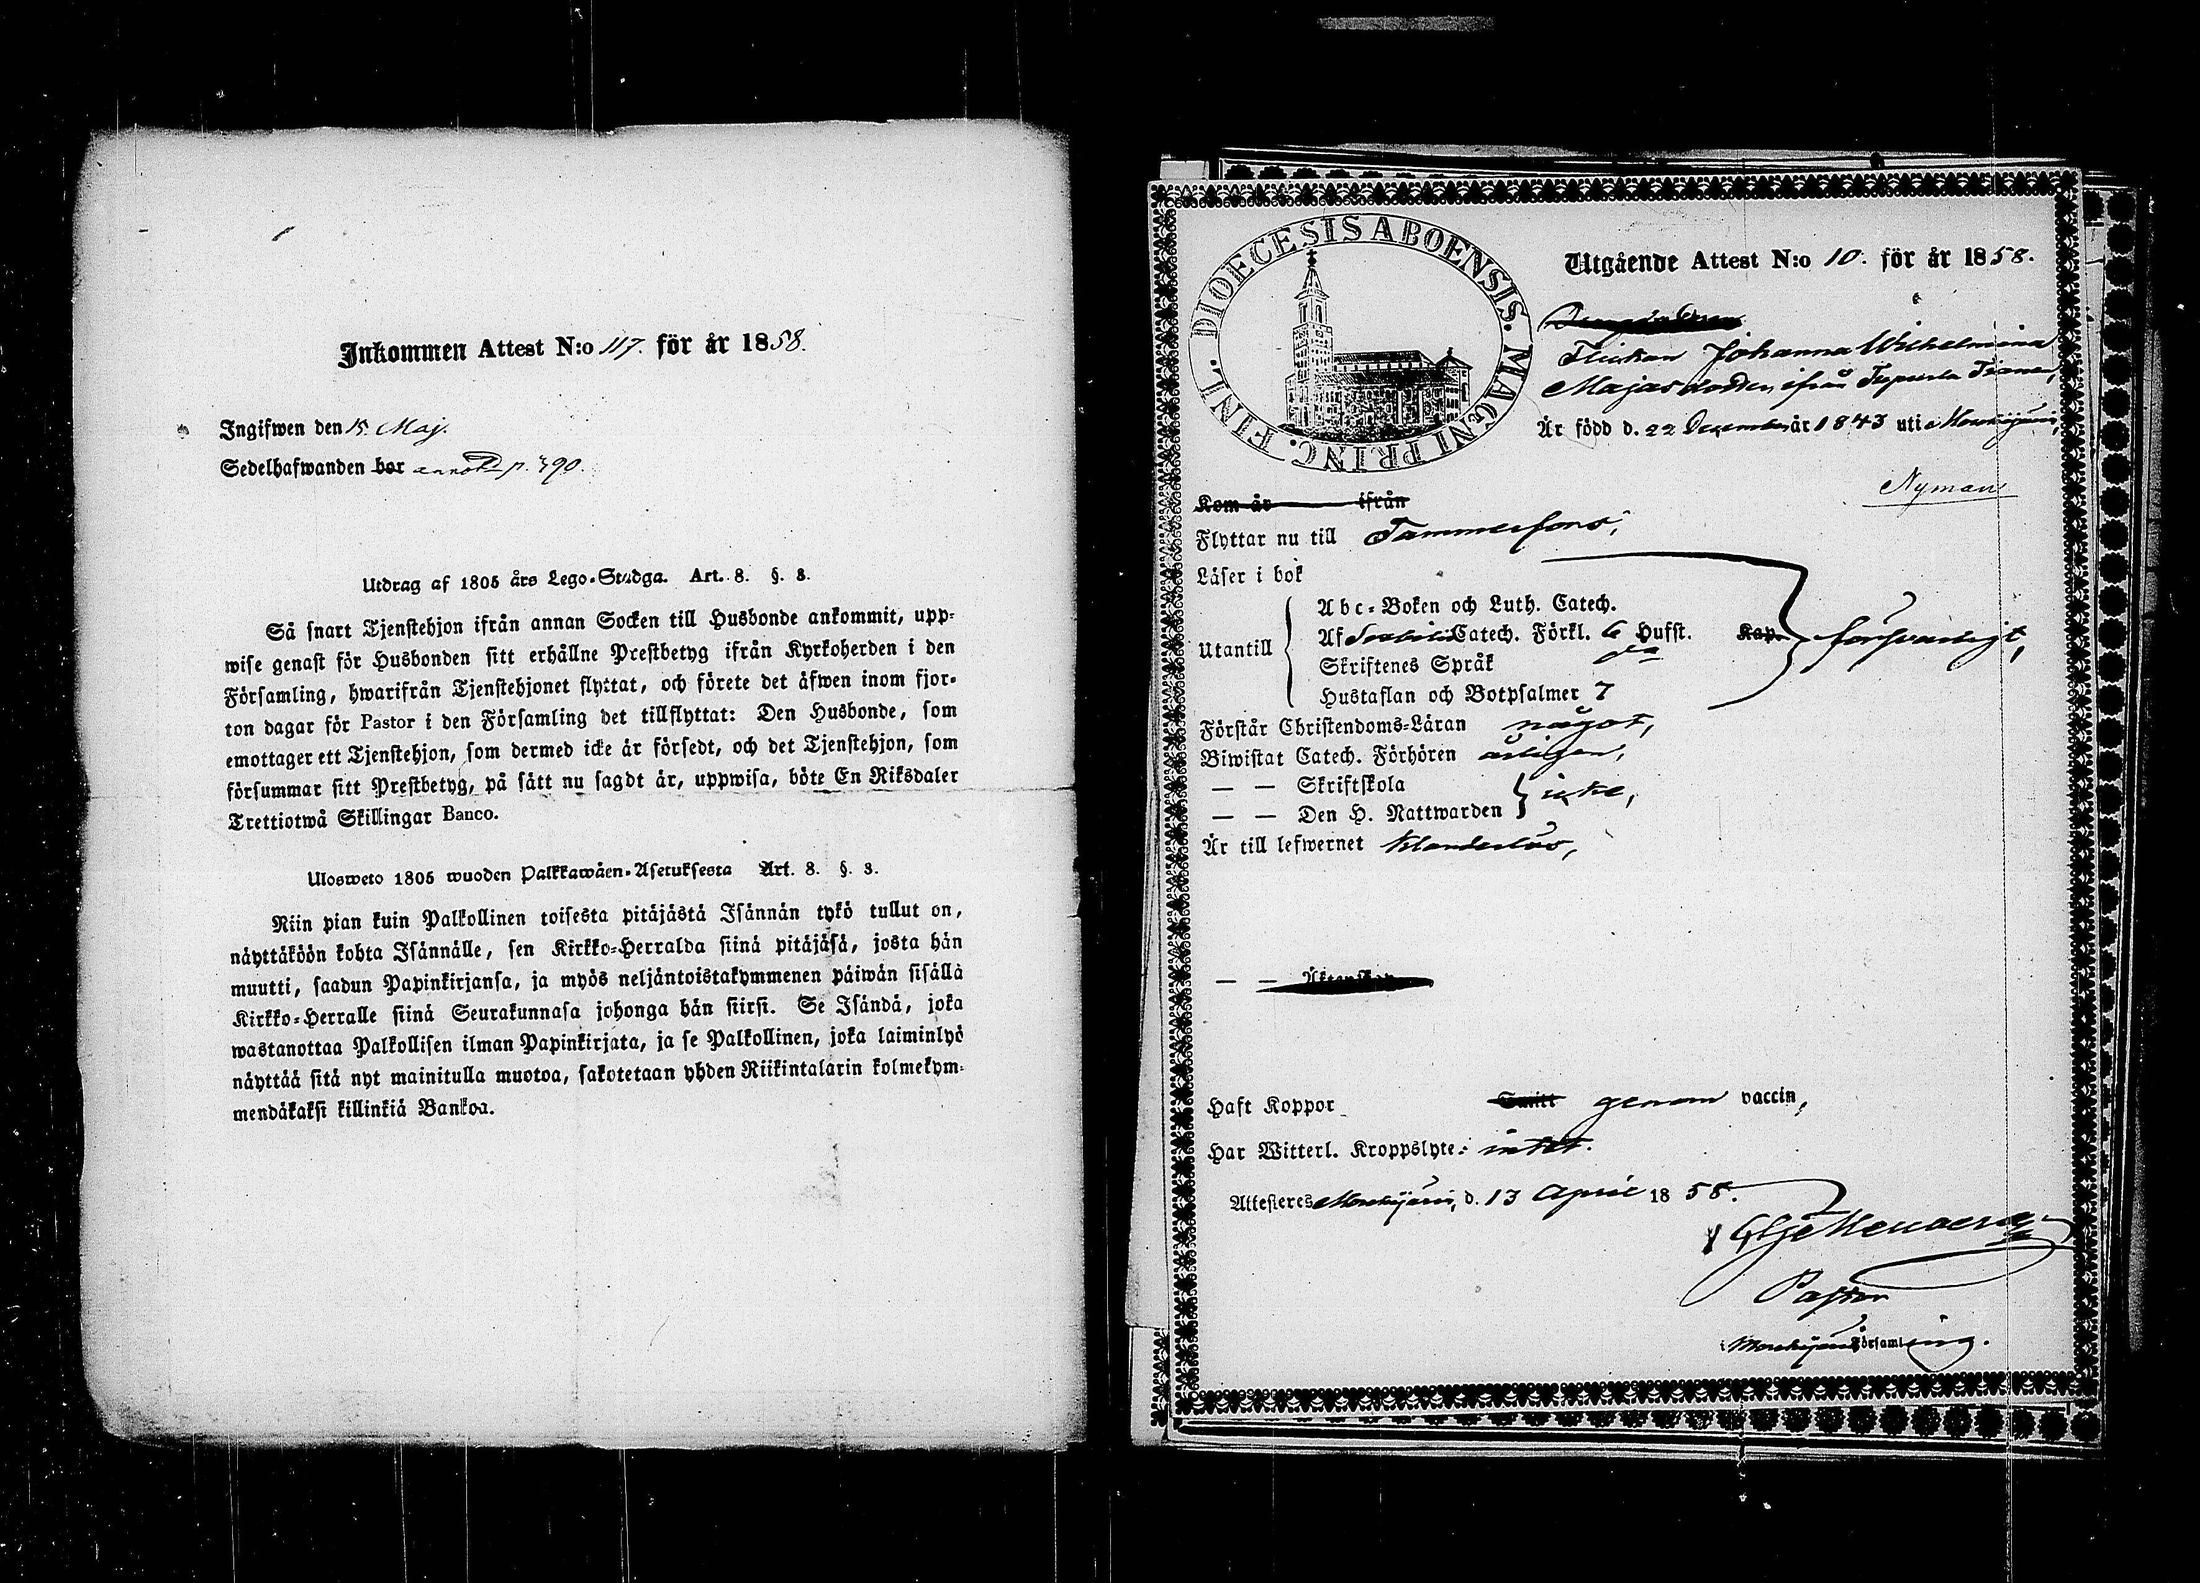 Inkommen Attest N:o 117. för år 1858.
Ingifwen den 15. Maj.
Sedelhafwanden bor annot. p. 490.
Utdrag af 1805 års Lego-Stadga. Art. 8. §. 3.
Så snart Tjenstehjon ifrån annan Socken till Husbonde ankommit, upp-
wise genast för Husbonden sitt erhållne Prestbetyg ifrån Kyrkoherden i den
Församling, hwarifrån Tjenstehjonet flyttat, och förete det äfwen inom fjor-
ton dagar för Pastor i den Församling det tillflyttat: Den Husbonde, som
emottager ett Tjenstehjon, som dermed icke är försedt, och det Tjenstehjon, som
försummar sitt Prestbetyg, på sätt nu sagdt är, uppwisa, böte En Riksdaler
Trettiotwå Skillingar Banco.
Ulosweto 1805 wuoden Palkkawäen-Asetuksesta Art. 8. §. 3.
Niin pian kuin Palkollinen toisesta pitäjästä Isännän tykö tullut on,
näyttäköön kohta Isännälle, sen Kirkko-Herralda siinä pitäjäsä, josta hän
muutti, saadun Papinkirjansa, ja myös neljäntoistakymmenen päiwän sisällä
Kirkko-Herralle siinä Seurakunnasa johonga hän siirsi. Se Isändä, joka
wastanottaa Palkollisen ilman Papinkirjata, ja se Palkollinen, joka laiminlyö
näyttää sitä nyt mainitulla muotoa, sakotetaan yhden Riikintalarin kolmekym-
mendäkaksi killinkiä Bankoa.
DIOECESIS ABOENSIS. MAGNI PRINC. FINL.
Utgående Attest N:o 10. för år 1858.
Flickan Johanna Wilhelmina
Majasdotter, ifrån
Är född d. 22 December år 1843 uti Mouhijärvi,
Nyman
Kom år ifrån
Flyttar nu till Tammerfors,
Läser i bok
Utantill
Abc-Boken och Luth. Catech.
Af Catech. Förkl. 6 Hufst. Kap.
Skriftenes Språk
Hustaflan och Botpsalmer 7
försvarligt,
Förstår Christendoms-Läran något,
Biwistat Catech. Förhören årligen,
— — Skriftskola
— — Den H. Nattwarden
icke,
Är till lefwernet klanderlös,
— — Äktenskap
Haft Koppor genom vaccin,
Har Witterl. Kroppslyte: intet.
Attesteres Mouhijärvi, d. 13 April 1858.
Pastor
i Mouhijärvi Församling.